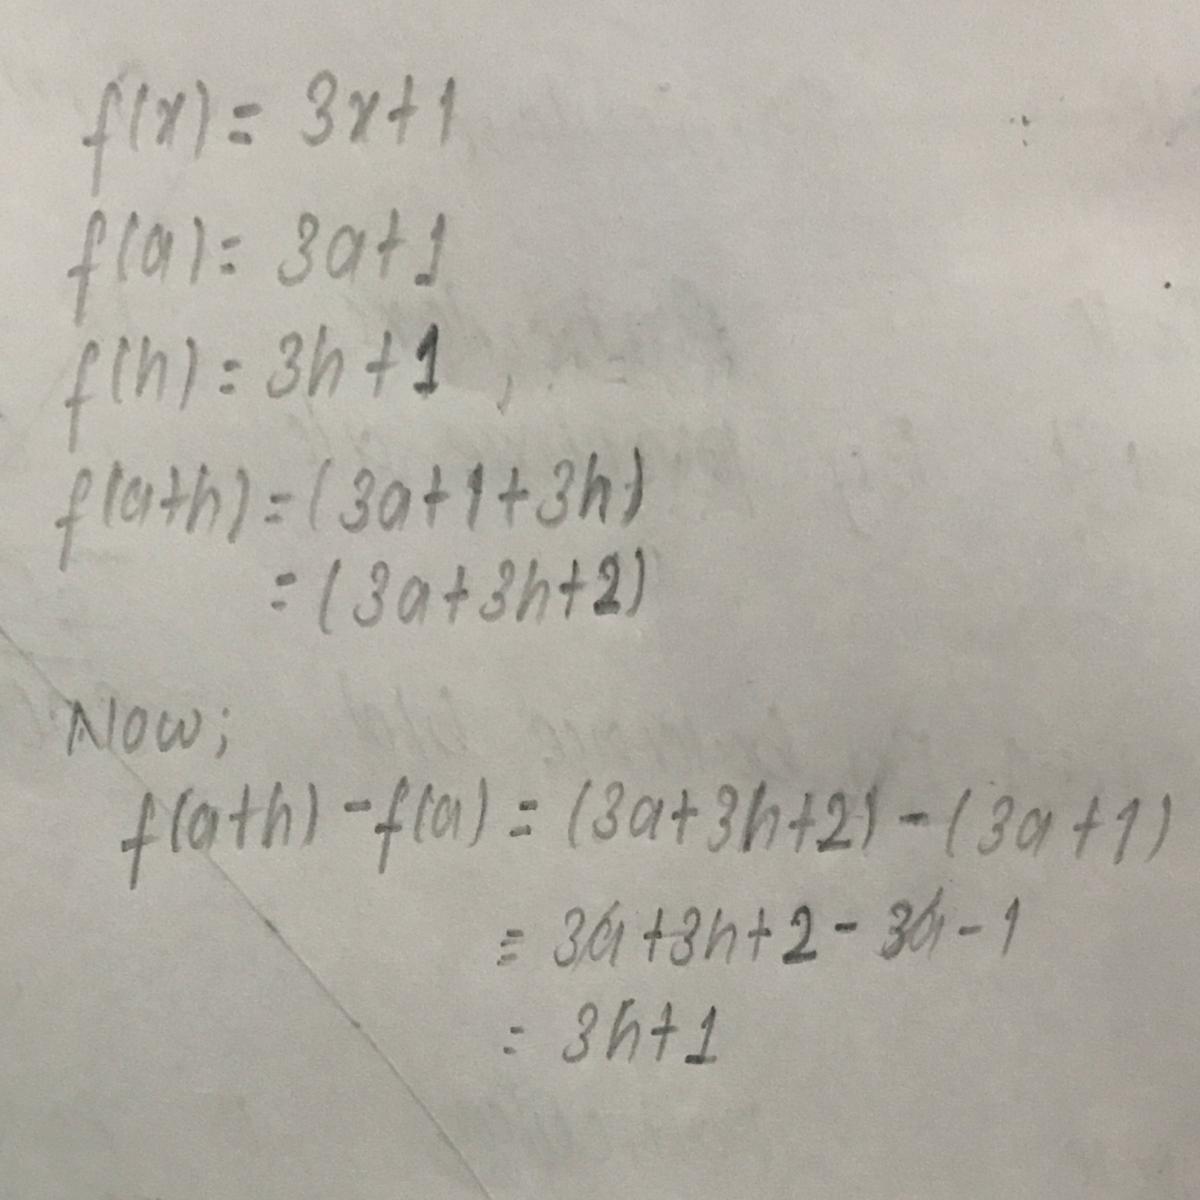 f(x) = 3x+1
f(a) = 3a+1
f(h) = 3h+1
f(a+h) = (3a+1+3h)
= (3a+3h+2)
Now;
f(a+h) - f(a) = (3a+3h+2) - (3a+1)
= 3a+3h+2-3a-1
= 3h+1